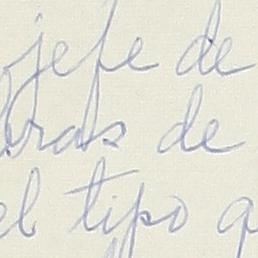 jefe de
bras de
el tipo q